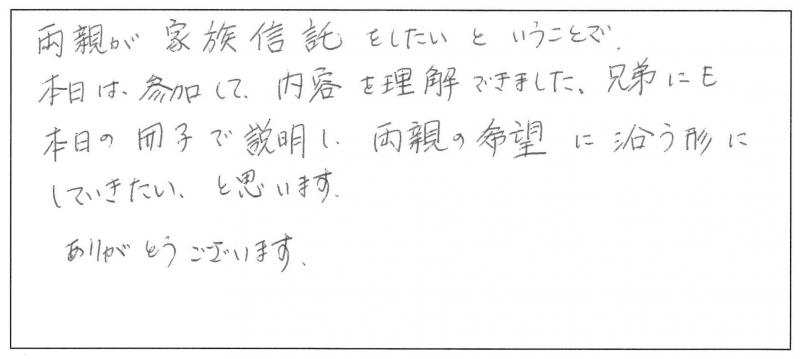 両親が家族信託をしたいということで、
本日は、参加して、内容を理解できました。兄弟にも
本日の冊子で説明し、両親の希望に沿う形に
していきたい、と思います。
ありがとうございます。